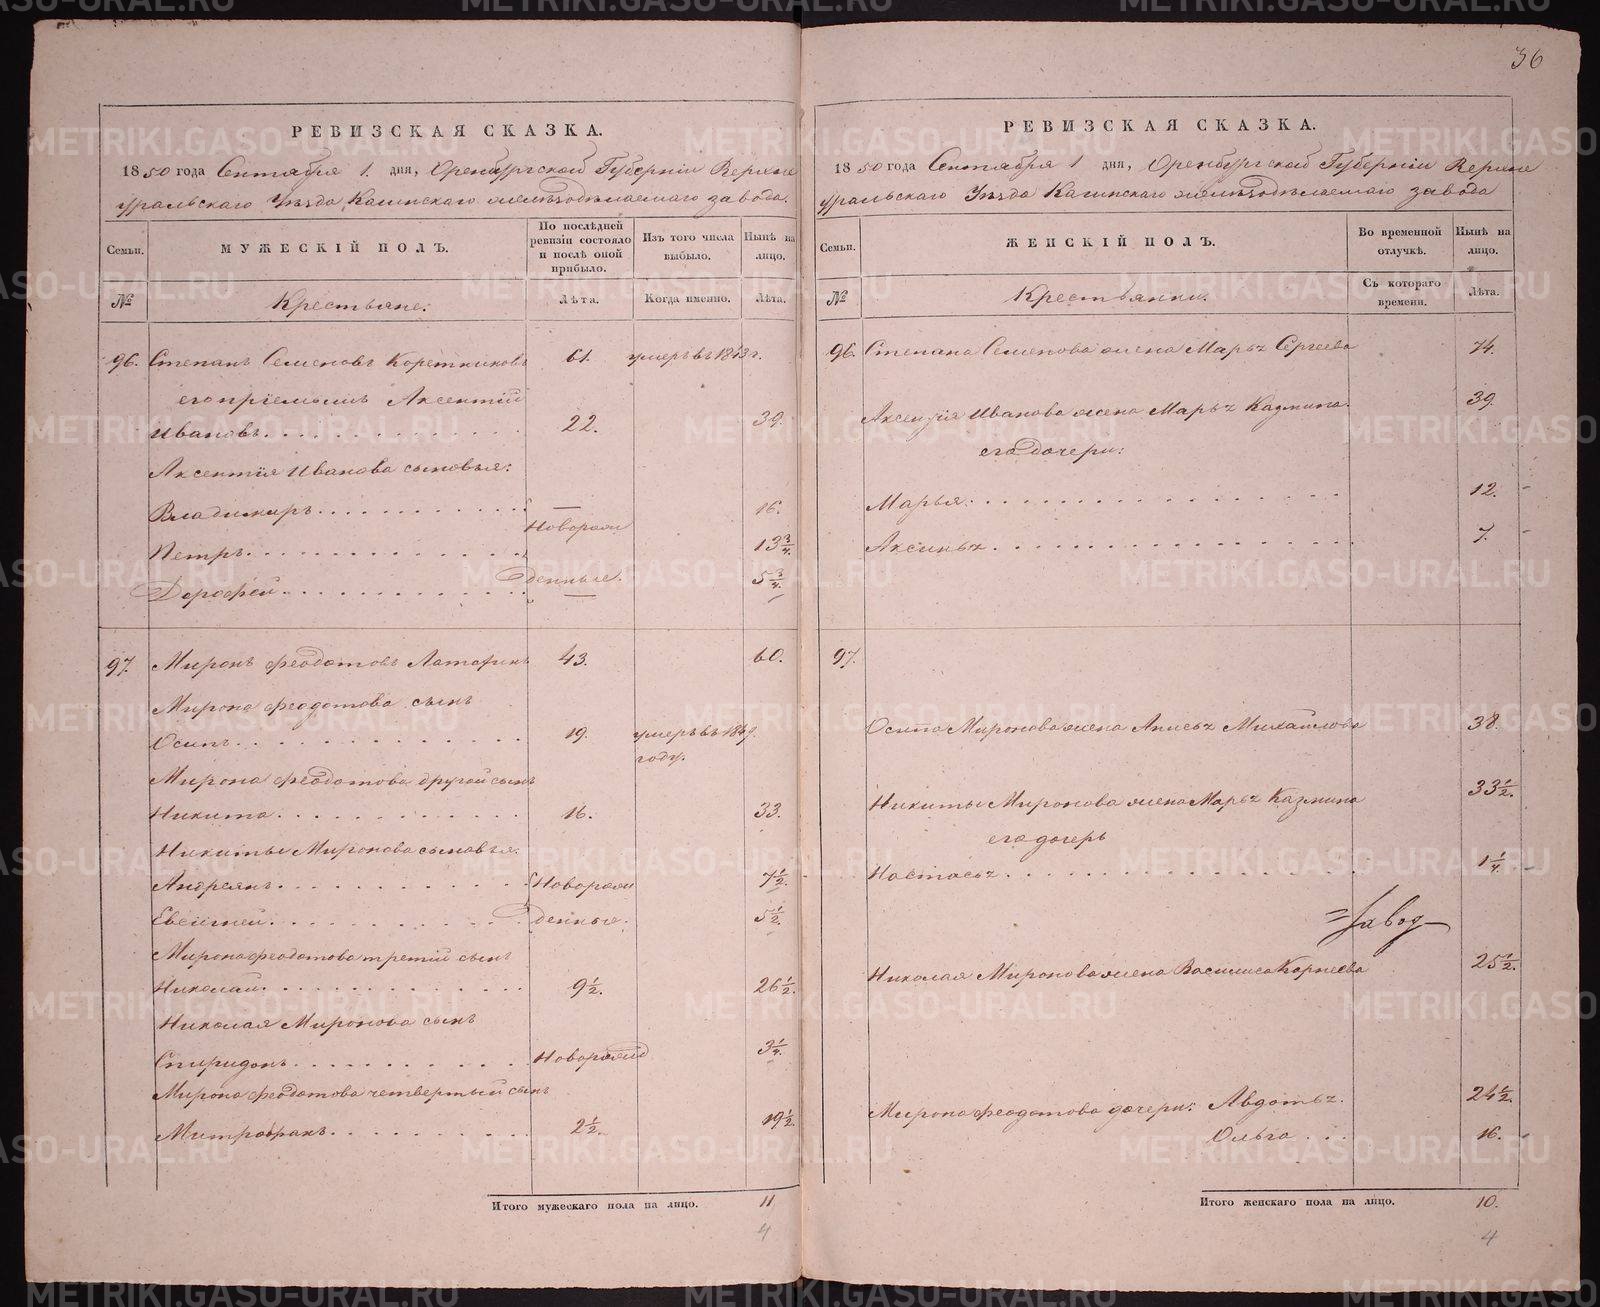 36
РЕВИЗСКАЯ СКАЗКА.
1850 года Сентября 1. дня, Оренбургской Губернiи Верхне
уральскаго Уѣзда Кагинскаго желѣзодѣлаемаго завода.
Семьи.
МУЖЕСКІЙ ПОЛЪ.
По послѣдней ревизіи состояло и послѣ оной прибыло.
Изъ того числа выбыло.
Нынѣ на лицо.
№
Крестьяне:
Лѣта.
Когда именно.
Лѣта.
96. Степанъ Семеновъ Коретниковъ 61. умеръ въ 1843 г.
его прiемышъ Аксентiй
Ивановъ. 22. 39.
Аксентiя Иванова сыновья:
Владимиръ. 16.
Новорож
Петръ. 13 3/4.
денные.
Дорофей. 5 3/4.
97. Миронъ Феодотовъ Латохинъ 43. 60.
Мирона Феодотова сынъ
Осипъ. 19. умеръ въ 1849.
году.
Мирона Феодотова другой сынъ
Никита. 16. 33.
Никиты Миронова сыновья:
Андреянъ. Новорож 7 1/2.
Евгенiй. денные. 5 1/2.
Мирона Феодотова третiй сынъ
Николай. 9 1/2. 26 1/2.
Николая Миронова сынъ
Спиридонъ. Новорожд 3 1/4.
Мирона Феодотова четвертый сынъ
Митрофанъ. 2 1/2. 19 1/2.
Итого мужескаго пола на лицо. 11
4
РЕВИЗСКАЯ СКАЗКА.
1850 года Сентября 1 дня, Оренбургской Губернiи Верхне
уральскаго Уѣзда Кагинскаго желѣзодѣлаемаго завода
Семьи.
ЖЕНСКІЙ ПОЛЪ.
Во временной отлучкѣ.
Нынѣ на лицо.
№
Крестьянки.
Съ котораго времени.
Лѣта.
96. Степана Семенова жена Марья Сергеева 74.
Аксентiя Иванова жена Марья Казмина. 39.
его дочери:
Марья. 12.
Аксинья. 7.
97.
Осипа Миронова жена Анисья Михайлова 38.
Никиты Миронова жена Марья Казмина 33 1/2.
его дочерь
Настасья. 1 1/4.
= Завод
Николая Миронова жена Василиса Корнеева 25 1/2.
Мирона Феодотова дочери: Авдотья. 24 1/2.
Ольга. 16.
Итого женскаго пола на лицо. 10.
4
METRIKI.GASO-URAL.RU